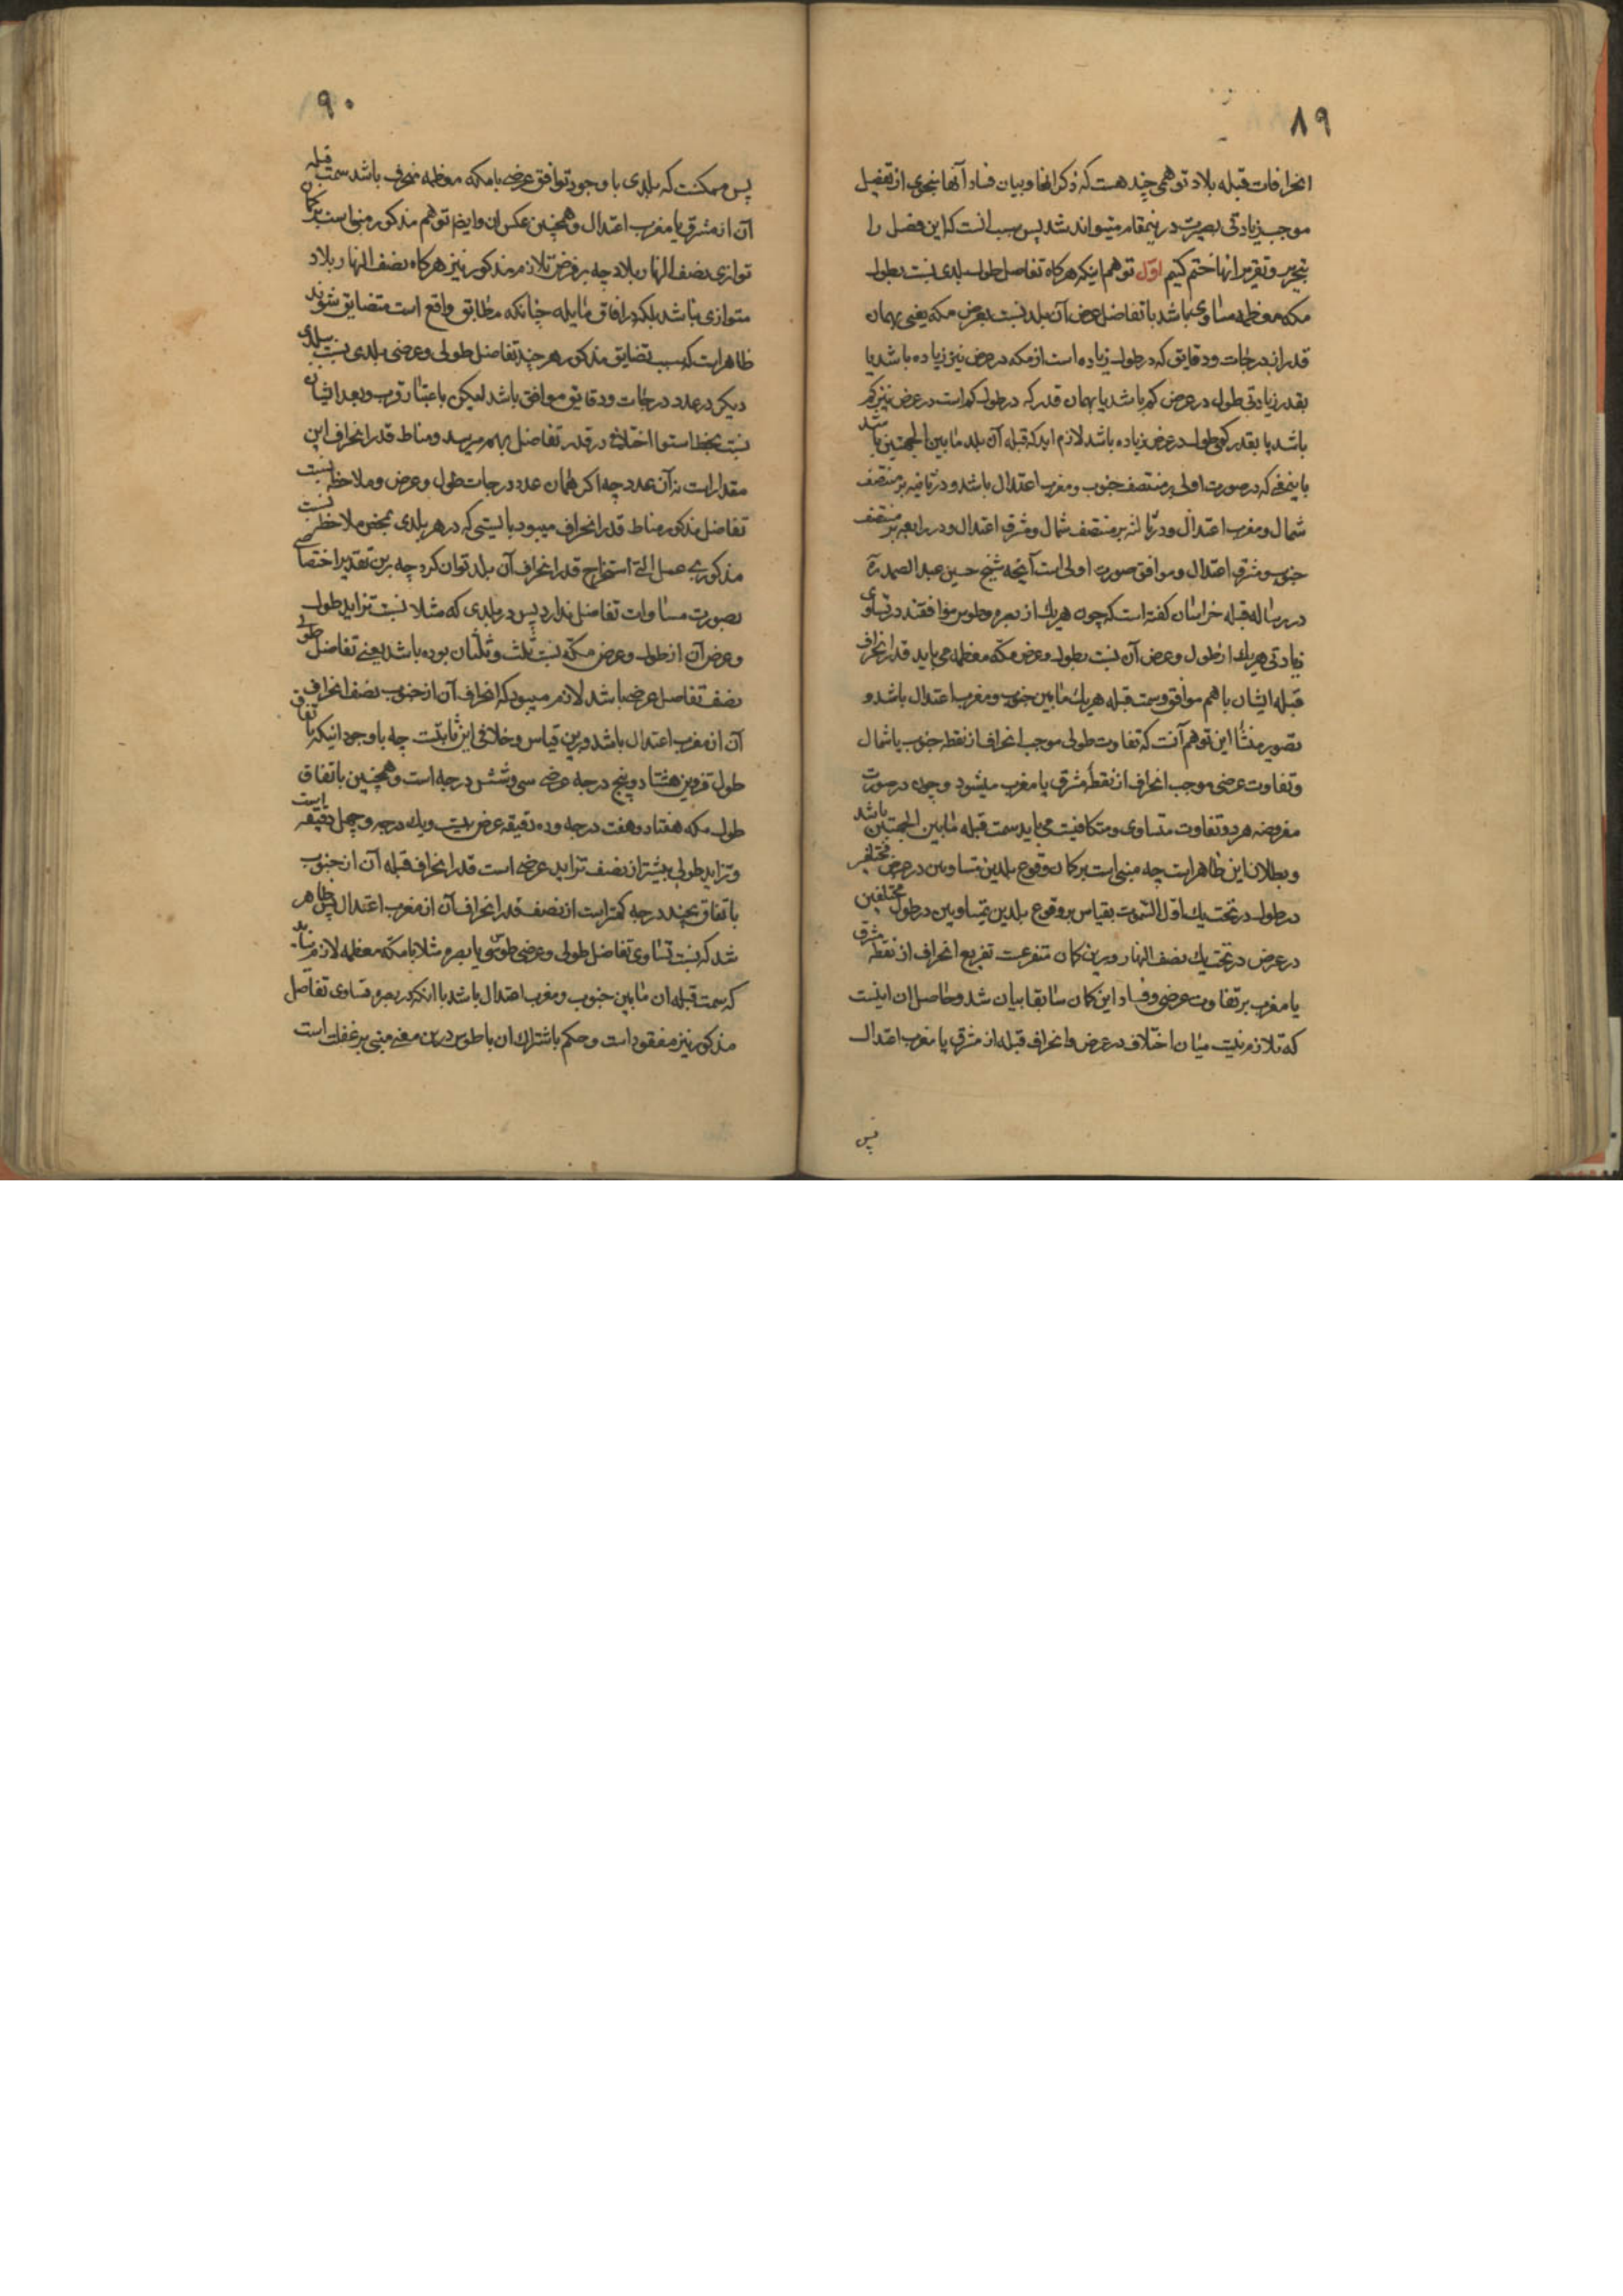 ۸۹
انحرافات قبله بلاد توهمی چند هست که ذکر انها و بیان فساد آنها بنحوی از تفصیل
موجب زیادتی بصیرت درینمقام میتواند شد پس مناسب انست که این فصل را
بتحریر و تقریر انها ختم کنیم اوّل توهم اینکه هرکاه تفاضل طول بلدی نسبت بطول
مکه معظمه مساوی باشد با تفاضل عرض آن بلد نسبت بعرض مکه یعنی بهمان
قدر از درجات و دقایق که در طول زیاده است از مکه در عرض نیز زیاده باشد یا
بقدر زیادتی طول در عرض کم باشد یا بهمان قدر که در طول کم است در عرض نیز کم
باشد یا بقدر کمی طول در عرض زیاده باشد لازم اید که قبله آن بلد مابین الجهتین باشد
باینمعنی که در صورت اولی بر منتصف جنوب و مغرب اعتدال باشد و در ثانیه بر منتصف
شمال و مغرب اعتدال و در ثالثه بر منتصف شمال و مشرق اعتدال و در رابعه بر منتصف
جنوب و مشرق اعتدال و موافق صورت اولی است آنچه شیخ حسین عبد الصمد ره
در رساله قبله خراسان کفته است که چون هریک از بصره و طوس موافقند در تساوی
زیادتی هریک از طول و عرض آن نسبت بطول و عرض مکّه معظمه می باید قدر انحراف
قبله ایشان با هم موافق و سمت قبله هریک مابین جنوب و مغرب اعتدال باشد و
تصویر منشأ این توهم آنست که تفاوت طولی موجب انحراف از نقطه جنوب یا شمال
و تفاوت عرضی موجب انحراف از نقطه مشرق یا مغرب میشود و چون در صورت
مفروضه هر دو تفاوت متساوی و متکافیست می باید سمت قبله مابین الجهتین باشد
و بطلان این ظاهر است چه مبنی است بر کمان وقوع بلدین متساویین در عرض مختلفین
در طول در تحت یک اوّل السّموت بقیاس بر وقوع بلدین متساویین در طول مختلفین
در عرض در تحت یک نصف النهار و برین کمان متفرعست تفریع انحراف از نقطه مشرق
یا مغرب بر تفاوت عرضی و فساد این کمان سابقا بیان شد و حاصل ان اینست
که تلازم نیست میان اختلاف در عرض و انحراف قبله از مشرق یا مغرب اعتدال
پس
۹۰
پس ممکنست که بلدی با وجود توافق عرضی با مکه معظمه منحرف باشد سمت قبله
آن از مشرق یا مغرب اعتدال و همچنین عکس ان و ایضا توهم مذکور مبنی است بر کمان
توازی نصف النهار بلاد چه بر فرض تلازم مذکور نیز هرکاه نصف النهار بلاد
متوازی نباشد بلکه در افاق مایله چنانکه مطابق واقع است متضایق شوند
ظاهر است که بسبب تضایق مذکور هر چند تفاضل طولی و عرضی بلدی نسبت ببلدی
دیکر در عدد درجات و دقایق موافق باشد لیکن باعتبار قرب و بعد ایشان
نسبت بخط استوا اختلاف در قدر تفاضل بهم میرسد و مناط قدر انحراف این
مقدار است نه آن عدد چه اکر همان عدد درجات طول و عرض و ملاحظه نسبت
تفاضل مذکور مناط قدر انحراف میبود بایستی که در هر بلدی بمحض ملاحظه نسبت
مذکور بی عمل التی استخراج قدر انحراف آن بلد توان کرد چه برین تقدیر اختصاصی
بصورت مساوات تفاضل ندارد پس در بلدی که مثلا نسبت تزاید طول
و عرض آن از طول و عرض مکّه نسبت ثلث و ثلثان بوده باشد یعنی تفاضل طولی
نصف تفاضل عرضی باشد لازم میبود که انحراف آن از جنوب نصف انحراف
آن از مغرب اعتدال باشد و برین قیاس و خلاف این ثابتست چه با وجود اینکه باتفاق
طول قزوین هشتاد و پنج درجه عرضی سی و شش درجه است و همچنین باتفاق
طول مکه هفتاد و هفت درجه و ده دقیقه عرض بیست و یک درجه و چهل دقیقه است
و تزاید طولی بیشتر از نصف تزاید عرضی است قدر انحراف قبله آن از جنوب
باتفاق بچند درجه کمتر است از نصف قدر انحراف آن از مغرب اعتدال پس ظاهر
شد که نسبت تساوی تفاضل طولی و عرضی طوس و یا بصره مثلا با مکّه معظمه لازم ندارد
که سمت قبله ان مابین جنوب و مغرب اعتدال باشد با انکه در بصره تساوی تفاضل
مذکور نیز مفقود است و حکم باشتراک ان با طوس درین معنی مبنی بر غفلت است